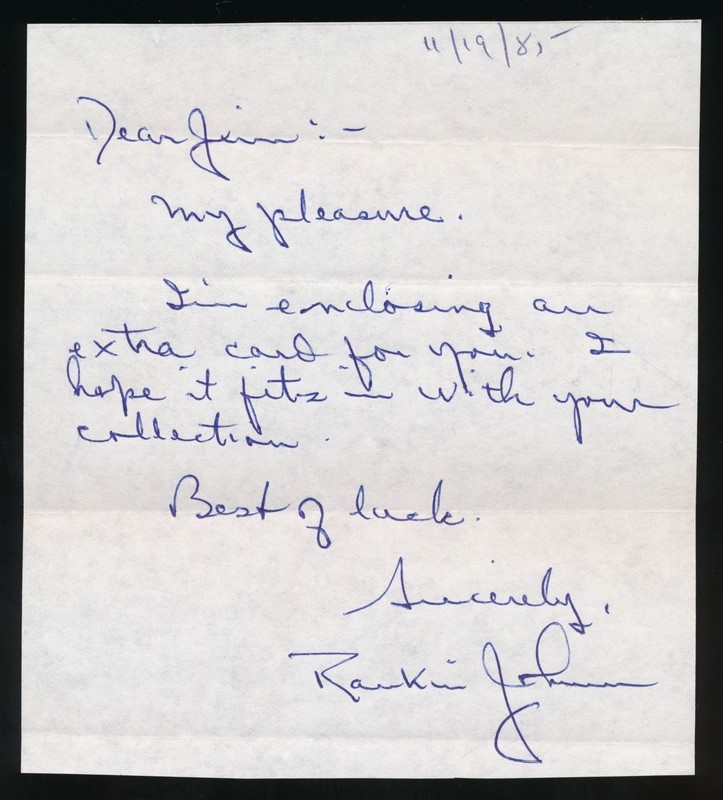 11/19/85
Dear Jim:-
My pleasure.
I'm enclosing an
extra card for you. I
hope it fits in with your
collection.
Best of luck.
Sincerely,
Rankin Johnson